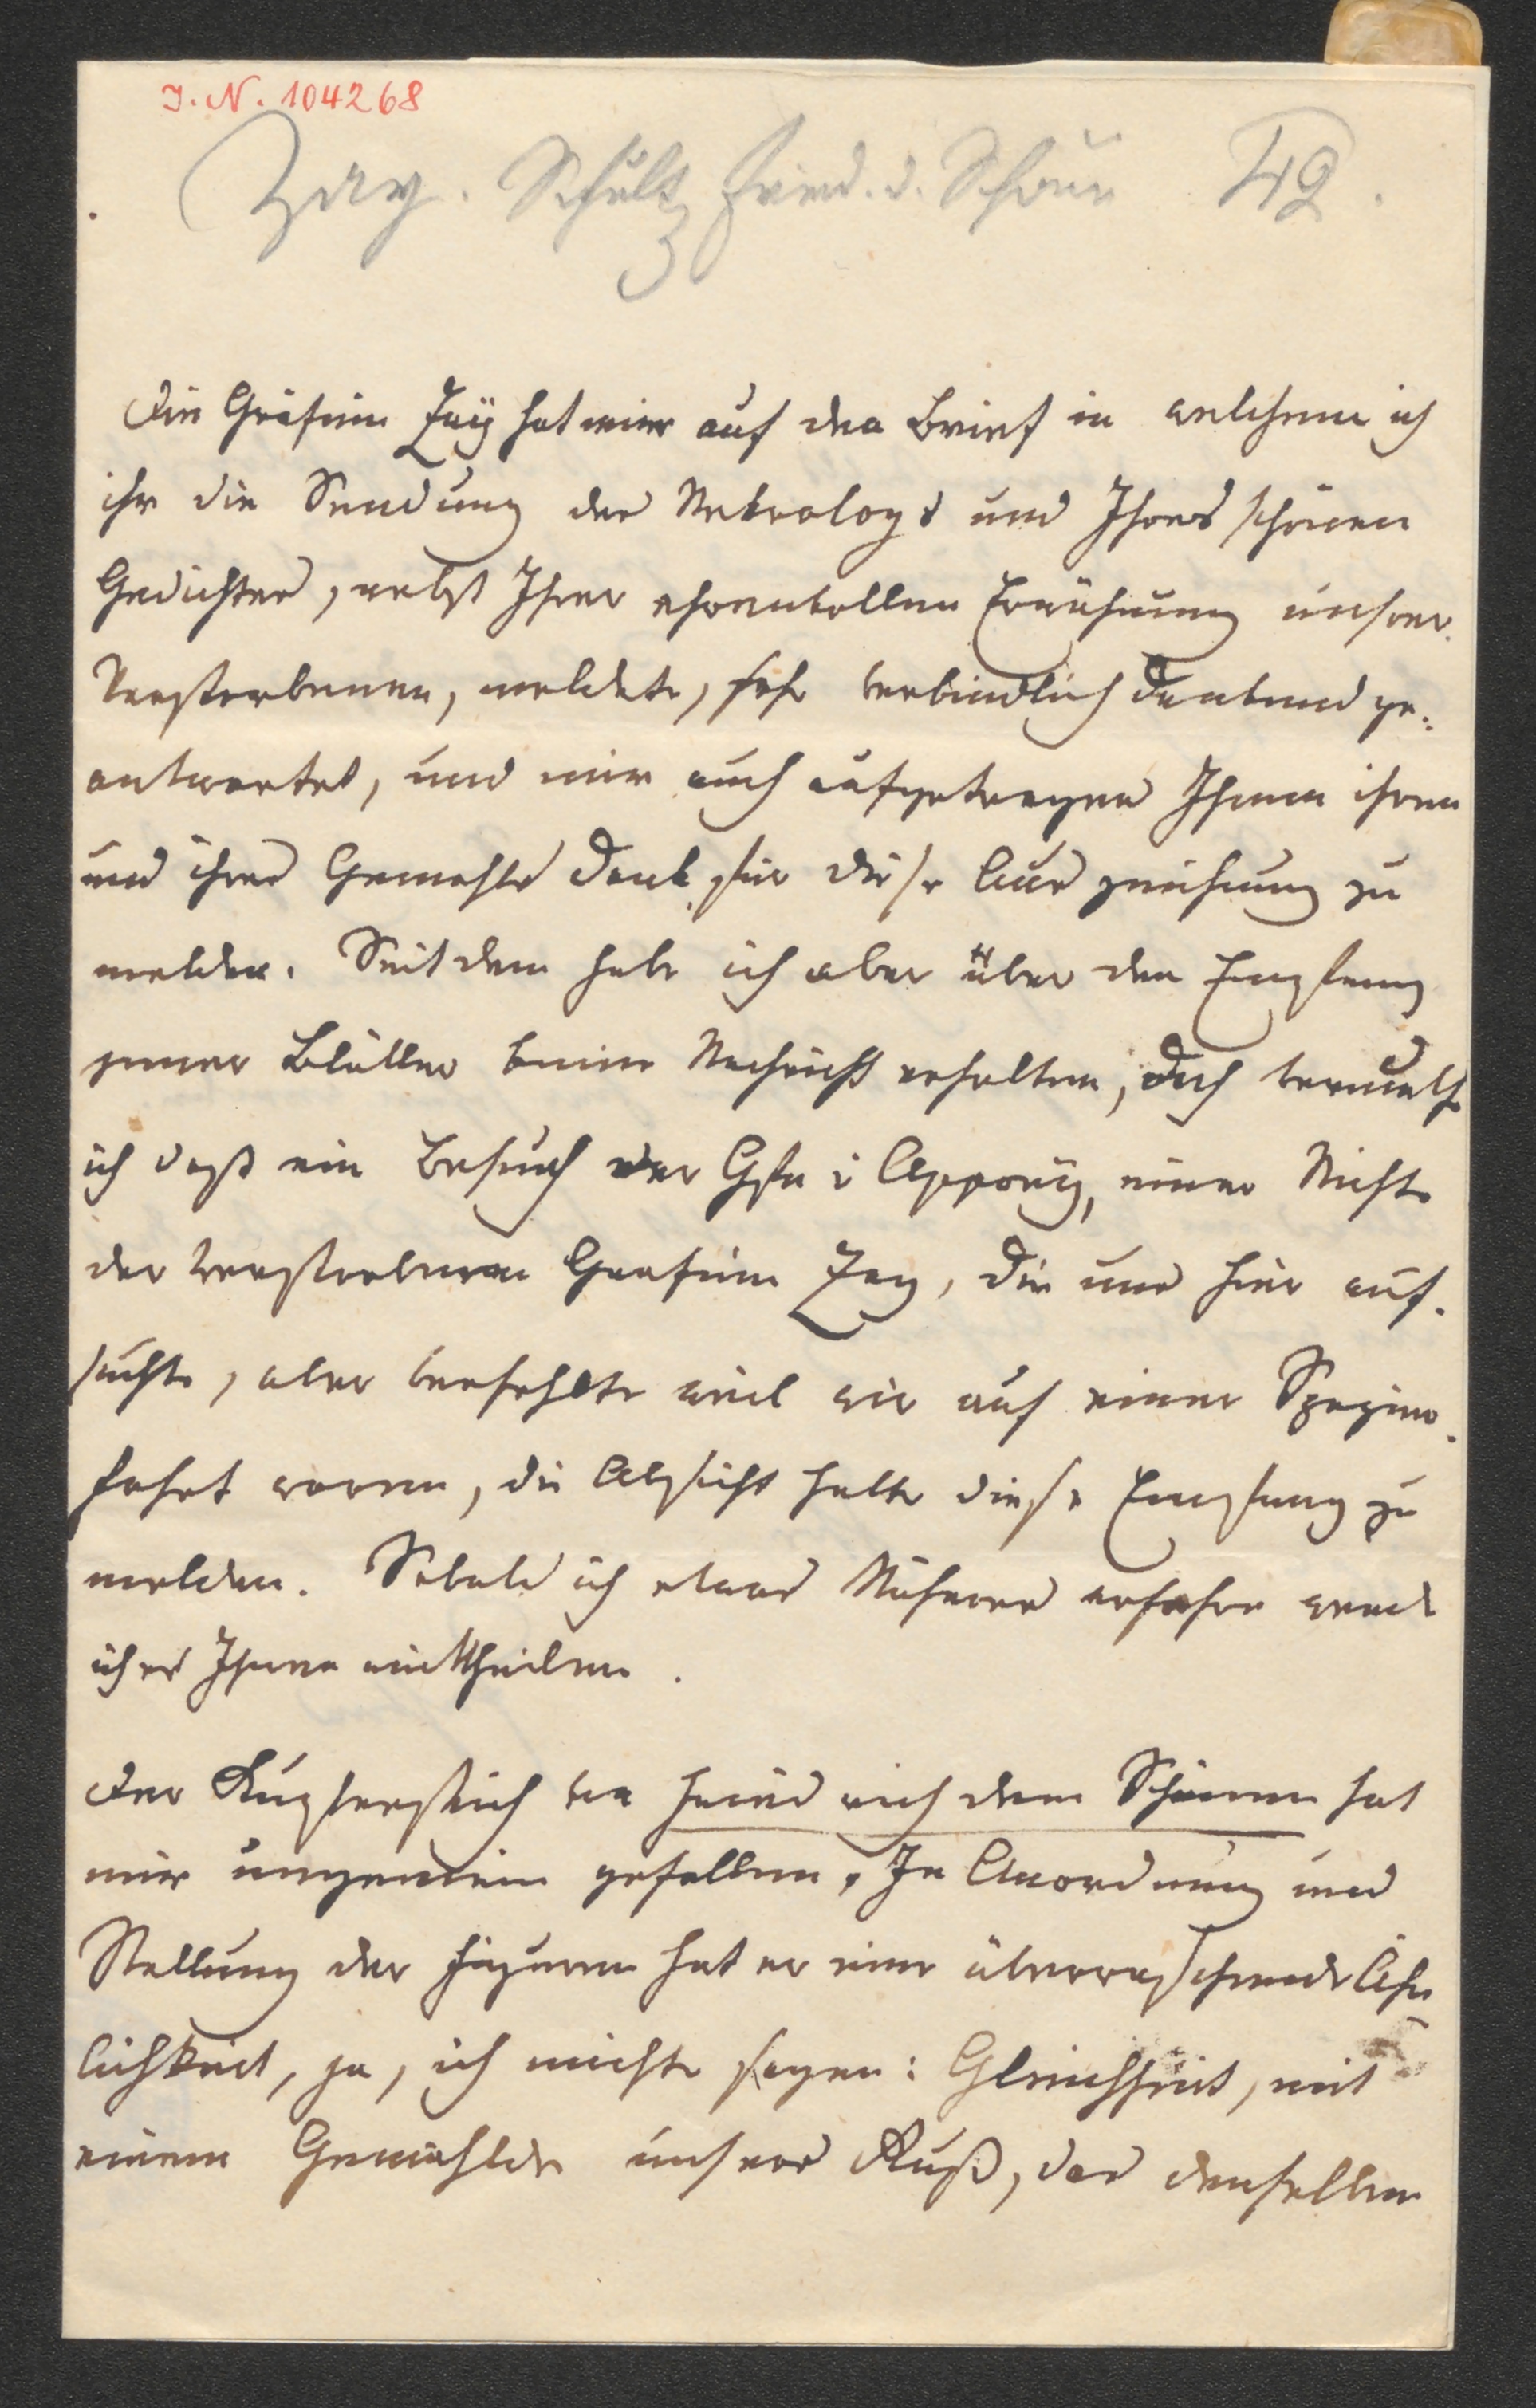 I. N. 104268
Zay. Schulz, Fried. d. Schöne 42.
Die Gräfinn Zaÿ hat mir auf den Brief in welchem ich
ihr die Sendung des Nekrologs und Ihres schönen
Gedichtes, nebst Ihrer ehrenvollen Erwähnung unsrer
Verstorbenen, meldete, sehr verbindlich dankend ge-
antwortet, und mir auch aufgetragen Ihnen ihren
und ihres Gemahls Dank für diese Auszeichnung zu
melden. Seitdem habe ich aber über den Empfang
jener Blätter keine Nachricht erhalten, doch vermuthe
ich daß ein Besuch der Gfn Appony, einer Nichte
der verstorbenen Gräfinn Zay, die uns hier auf-
suchte, aber verfehlte weil wir auf einer Spazier-
fahrt waren, die Absicht hatte diesen Empfang zu
melden. Sobald ich etwas Näheres erfahre werde
ich es Ihnen mittheilen.
Der Kupferstich von Friedrich dem Schönen hat
mir ungemein gefallen. In Anordnung und
Stellung der Figuren hat er eine überraschende Ähn-
lichkeit, ja, ich möchte sagen: Gleichheit, mit
einem Gemählde unsers Ruß, das denselben